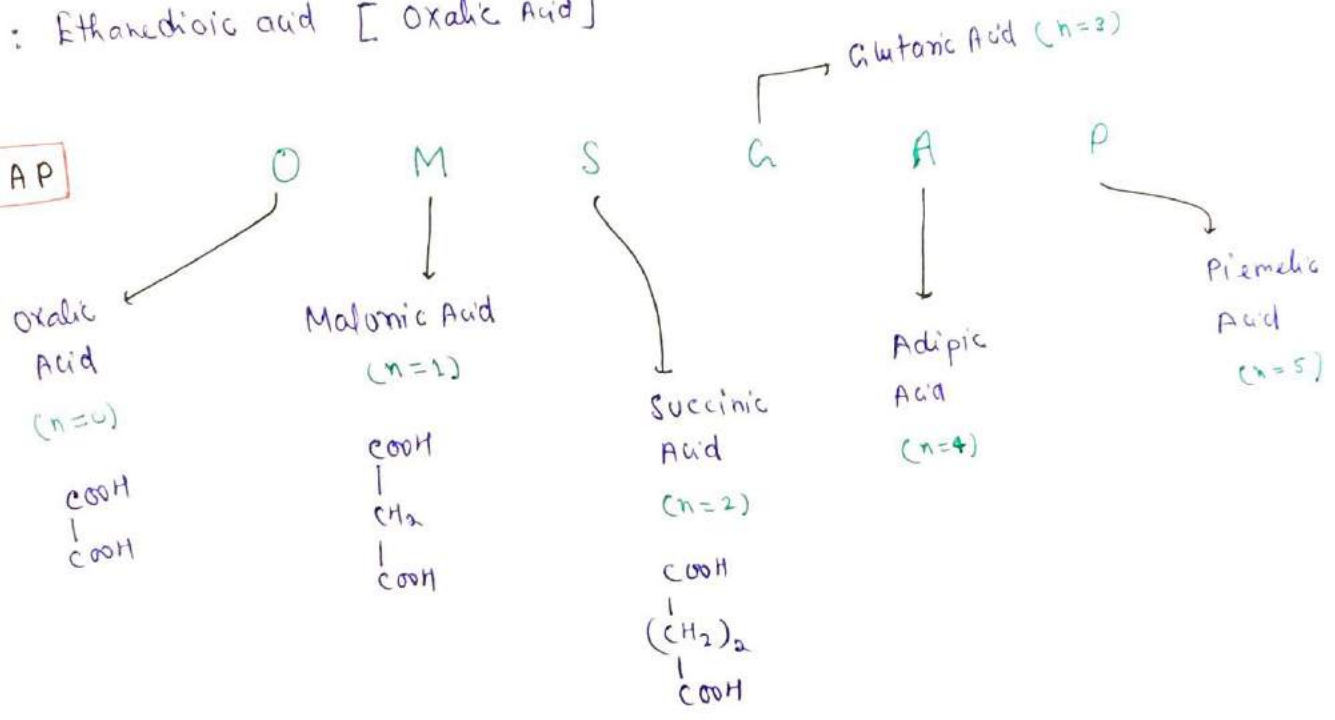 : Ethanedioic acid [ Oxalic Acid ]
Glutaric Acid (n=3)
AP
O M S G A P
Oxalic
Acid
(n=0)
COOH
|
COOH
Malonic Acid
(n=1)
COOH
|
CH2
|
COOH
Succinic
Acid
(n=2)
COOH
|
(CH2)2
|
COOH
Adipic
Acid
(n=4)
Piemelic
Acid
(n=5)